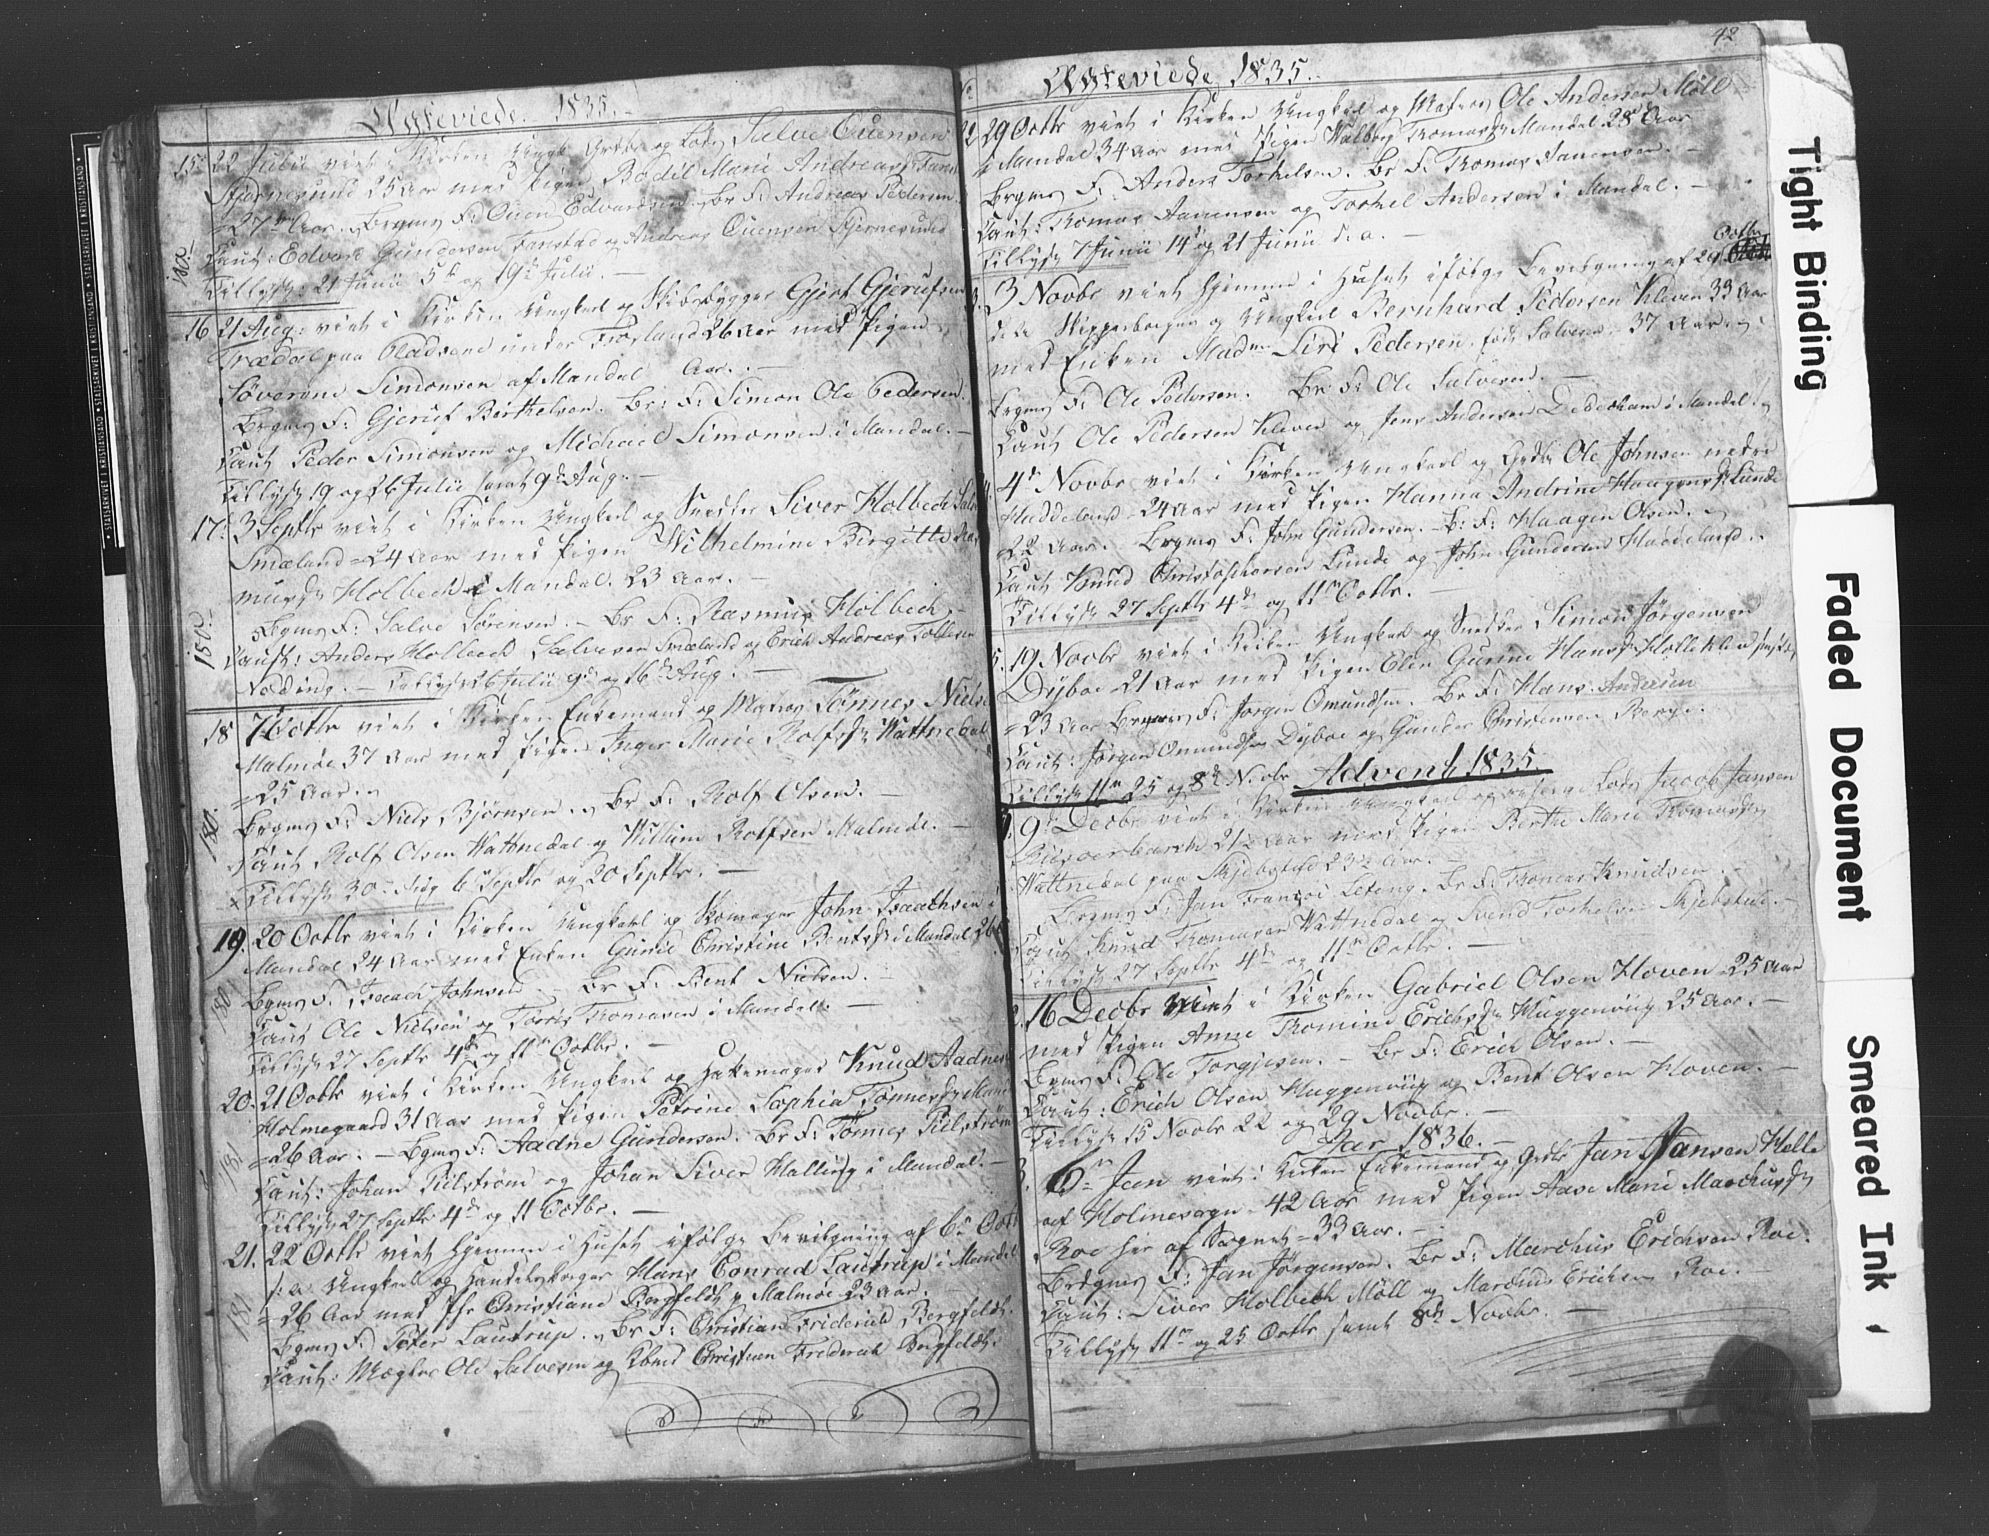 Ægteviede 1835.
15. 22 Julii viet i Kirken Ungk. Grdbr og Lods Salve Ouensen
Stjernesund 25 Aar med Pigen Bodil Marie Andreasd.
27 Aar. Brgms F: Ouen Edvardsen Br F: Andreas Pedersen.
Caut: Edvard Gundersen Farestad og Andreas Ouensen Stjernesund
Tillyst 21 Junii 5te og 19de Julii. —
16 21 Aug: viet i Kirken Ungkarl og Skibsbygger Gjert Gjerulfsen
Trædal paa Pladsene under Frøsland 26 Aar med Pigen
Severine Simonsen af Mandal Aar. —
Brgms F: Gjerulf Berthelsen. Br: F: Simon Ole Pedersen.
Caut Peder Simonsen og Michael Simonsen i Mandal. —
Tillyst 19 og 26 Julii samt 9de Aug. —
17. 3 Septbr viet i Kirken Ungkarl og Snedker Siver Holbech
Smæland 24 Aar med Pigen Wilhelmine Birgitte Ras
musd. Holbech i Mandal. 23 Aar. —
Brgms F: Salve Sørensen. — Br F: Rasmus Holbech. —
Caut: Anders Holbech Salvesen Smæland og Erich Andreas Tollisen
Noding. — Tillyst 26 Julii 9de og 16de Aug. —
18 7 Octbr viet i Kirken Enkemand og Matros Tønnes Niels
Malmøe 37 Aar med Pigen Inger Marie Rolfsd. Wattnedal
25 Aar.
Brgms F: Niels Bjørnsen. Br F: Rolf Olsen. —
Caut Rolf Olsen Wattnedal og Willum Rolfsen Malmøe. —
Tillyst 30 Aug 6 Septbr og 20 Septbr. —
19. 20 Octbr viet i Kirken Ungkarl og Skomager John Isaachsen i
Mandal 24 Aar med Enken Gunild Christine Bentsd. i Mandal 26
Brgms F. Isaach Johnsen. — Br F: Bent Nielsen. —
Caut Ole Nielsen og Tørris Thomasen i Mandal. —
Tillyst 27 Septbr 4de og 11te Octbr. —
20. 21 Octbr viet i Kirken Ungkarl og Hattemager Knud Aadnes
Holmegaard 31 Aar med Pigen Petrine Sophia Tønnesd. Mand
26 Aar. — Brgms F: Aadne Gundersen. Br F: Tønnes Pilstrøm
Caut: Johan Pilstrøm og Johan Siver Hallusg i Mandal. —
Tillyst 27 Septbr 4de og 11 Octbr. —
21. 22 Octbr viet hjemme i Huset ifølge Bevilgning af 6te Oct
s: a Ungkarl og Handelsborger Hans Conrad Lautrup i Mandal
26 Aar med Jfr Christiane Bergfeldt p Malmøe 23 Aar.
Brgms F: Peter Lautrup. Br F: Christian Friderich Bergfeldt.
Caut: Mægler Ole Salvesen og Kbmd Christian Frederich Bergfeldt.
180.
180.
180.
180
181
181
42
Ægteviede 1835.
22 29 Octbr viet i Kirken Ungkarl og Matros Ole Andersen Møll
i Mandal 34 Aar med Pigen Walborg Thomasd. Mandal 28 Aar
Brgms F: Anders Torkelsen. Br F: Thomas Aanensen. —
Caut: Thomas Aanensen og Torkel Andersen i Mandal. —
Tillyst 7 Junii 14de og 21 Junii s. a. —
3 Novbr viet hjemme i Huset ifølge Bevilgning af 29 Octbr
d. A. Skipperborger og Ungkarl Bernhard Pedersen Kleven 33 Aar
med Enken Madme Siri Pedersen, født Salvesen 37 Aar.
Brgms F: Ole Pedersen. Br F: Ole Salvesen. —
Caut Ole Pedersen Kleven og Jens Andersen Dedekam i Mandal.
4de Novbr viet i Kirken Ungkarl og Grdbr Ole Johnsen nedre
Haddeland 24 Aar med Pigen Hanna Andrine Haagensd. Lunde
22 Aar. Brgms F. John Gundersen. — Br: F: Haagen Olsen.
Caut Knud Christophersen Lunde og John Gundersen Haddeland.
Tillyst 27 Septbr 4de og 11te Octbr. —
5. 19 Novbr viet i Kirken Ungkarl og Snedker Simon Jørgensen
Dyboe 21 Aar med Pigen Elen Gurine Hansd. Holle
23 Aar Brgms F: Jørgen Omundsen. Br F: Hans Andersen
Caut: Jørgen Omundsen Dyboe og Gunder Christensen Berge.
Tillyst 11te 25 og 8de Novbr Advent 1835.
9de Decbr viet i Kirken Ungkarl og Lods Jacob Jansen
21½ Aar med Pigen Berthe Marie Thomasd.
Wattnedal paa Skjebstad 23½ Aar. —
Brgms F: Jan Francoi Leteng. Br F: Thomas Knudsen. —
Caut Knud Thomasen Wattnedal og Svend Torkelsen Skjebstad. —
Tillyst 27 Septbr 4de og 11te Octbr. —
2. 16 Decbr viet i Kirken Gabriel Olsen Hoven 25 Aar
med Pigen Anne Thomine Erichsd. Huggenvig 25 Aar. —
Brgms F: Ole Torgjesen. — Br F: Erich Olsen. —
Caut: Erich Olsen Huggenvig og Bent Olsen Hoven. —
Tillyst 15 Novbr 22 og 29 Novbr. —
Aar 1836. —
3. 6te Jan viet i Kirken Enkemand og Grdbr Jan Jansen Helle
af Holmesogn 42 Aar med Pigen Aase Marie Marchusd.
Roe her af Sognet 33 Aar. —
Brdgms F: Jan Jørgensen. Br F: Marchus Erichsen Roe.
Caut: Siver Holbech Møll og Marcus Erichsen Roe.
Tillyst 11te og 25 Octbr samt 8de Novbr. —
Tight Binding
Faded Document
Smeared Ink
STATSARKIVET I KRISTIANSAND • STATSARKIVET I KRISTIANSAND